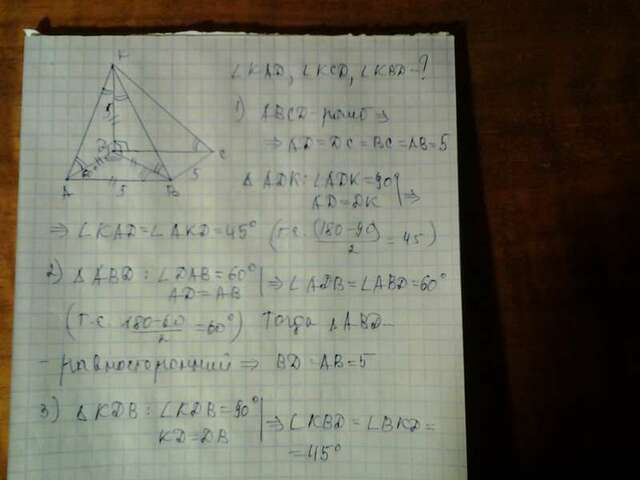 K
∠KAD, ∠KCD, ∠KBD - ?
1) ABCD - ромб ⇒
⇒ AD = DC = BC = AB = 5
5
D
C
A
5
B
5
Δ ADK: ∠ADK = 90° | ⇒
AD = DK
⇒ ∠KAD = ∠AKD = 45° (т.е. (180-90)/2 = 45)
2) Δ ABD: ∠DAB = 60° | ⇒ ∠ADB = ∠ABD = 60°
AD = AB
(т.е. 180-60/2 = 60°) Тогда ΔABD -
- равносторонний ⇒ BD = AB = 5
3) Δ KDB: ∠KDB = 90° | ⇒ ∠KBD = ∠BKD =
KD = DB
= 45°